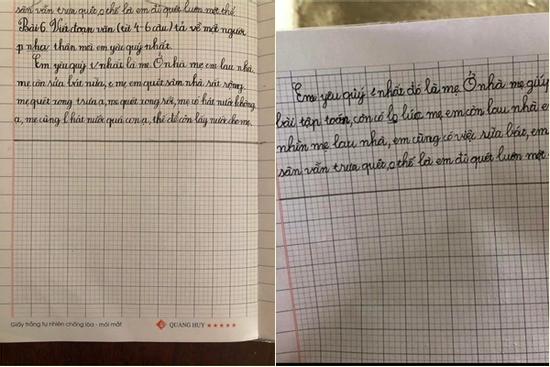 sân vẫn trưa quét, thế là em đi quét luôn một thể
Bài 6. Viết đoạn văn (từ 4-6 câu) tả về một người
thân mà em yêu quý nhất.
Em yêu quý nhất là mẹ. Ở nhà mẹ em lau nhà,
mẹ còn rửa bát nữa, mẹ em quét sân nhà rất rộng,
mẹ quét xong trưa ạ, mẹ quét xong rồi, mẹ có hát nước không
ạ, mẹ cũng khát nước quá con ạ, thế để con lấy nước cho mẹ.
Giấy trắng tự nhiên chống lóa - mỏi mắt
QUANG HUY ★★★★★
Em yêu quý nhất đó là mẹ. Ở nhà mẹ giúp
bài tập toán, còn có lúc mẹ em còn lau nhà
nhìn mẹ lau nhà, em cũng có việc rửa bát, em
sân vẫn trưa quét, thế là em đi quét luôn một